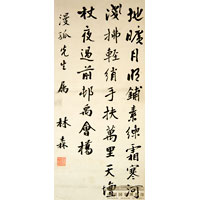 地曠月明鋪素練霜寒河
淺拂輕綃手扶萬里天壇
杖夜過前邨禹會橋
漢孤先生屬
林森